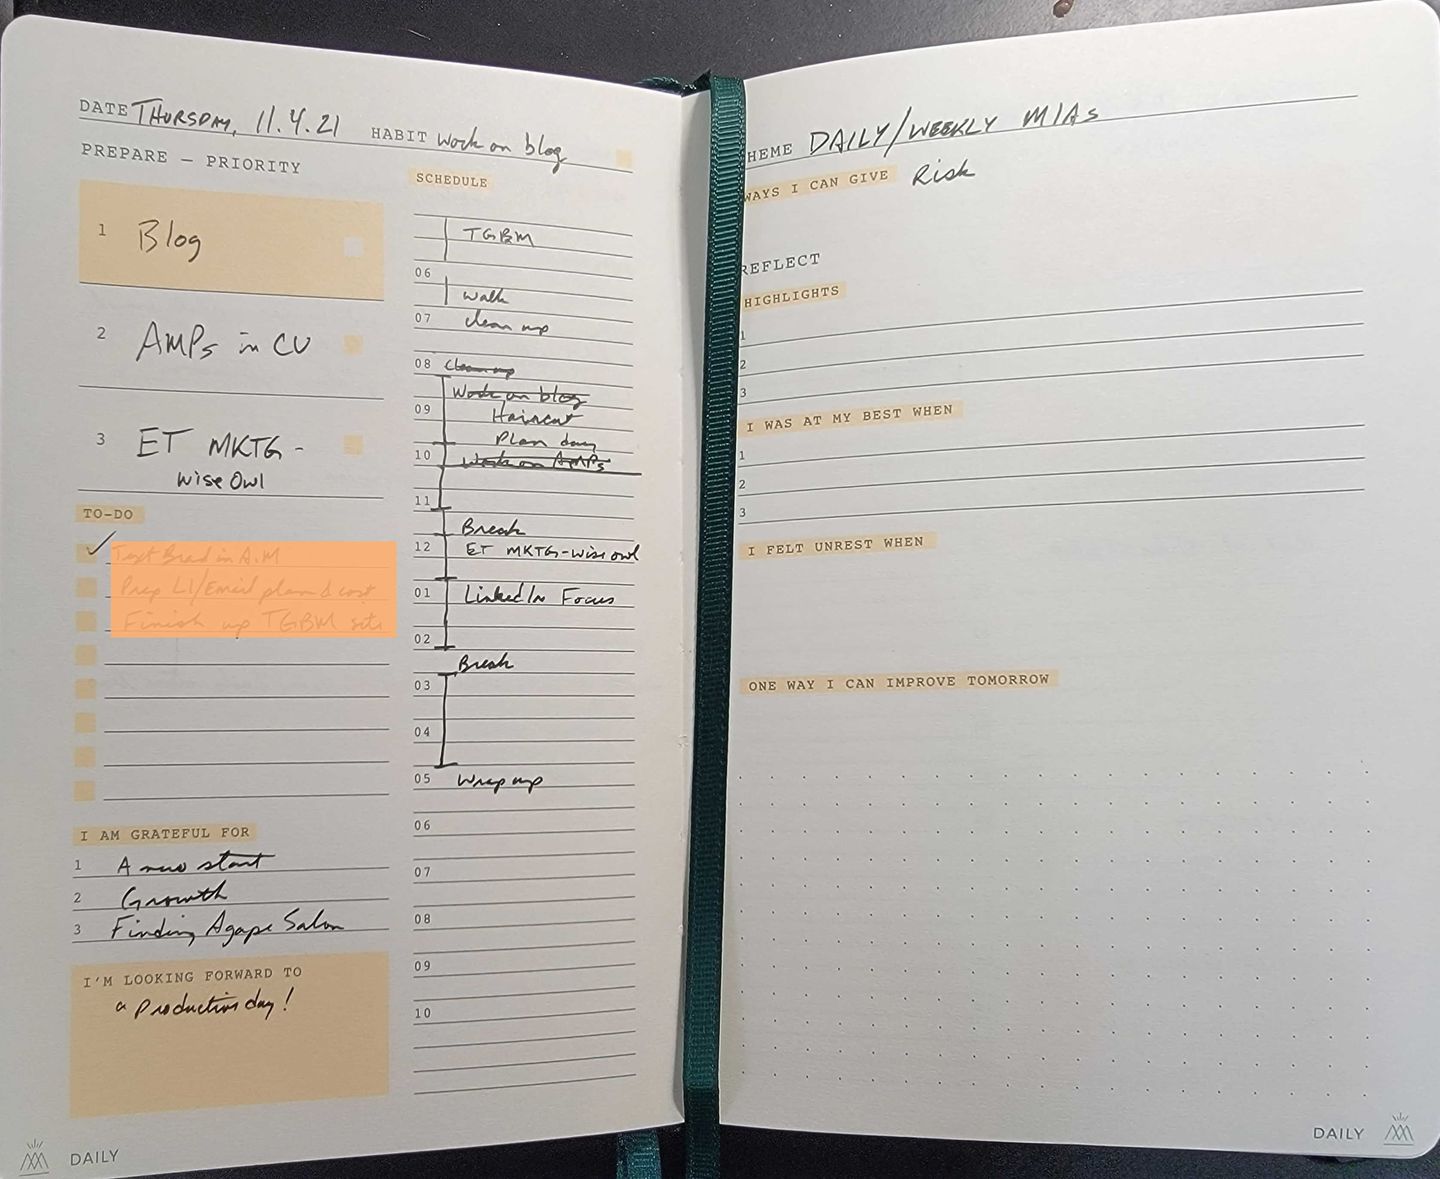 DATE THURSDAY, 11.4.21 HABIT Work on blog
PREPARE — PRIORITY
1 Blog
2 AMPs in CU
3 ET MKTG -
wise Owl
TO-DO
Text Brad in A.M
Prep LI/Email plan & cost
Finish up TGBM site
I AM GRATEFUL FOR
1 A new start
2 Growth
3 Finding Agape Salon
I'M LOOKING FORWARD TO
a productive day!
DAILY
SCHEDULE
TGBM
06
walk
07 clean up
08 Clean up
Work on blog
09 Haircut
Plan day
10 Work on AMPs
11
Break
12 ET MKTG-wise owl
01 LinkedIn Focus
02
Break
03
04
05 Wrap up
06
07
08
09
10
HEME DAILY/WEEKLY MIAs
WAYS I CAN GIVE Risk
REFLECT
HIGHLIGHTS
1
2
3
I WAS AT MY BEST WHEN
1
2
3
I FELT UNREST WHEN
ONE WAY I CAN IMPROVE TOMORROW
DAILY